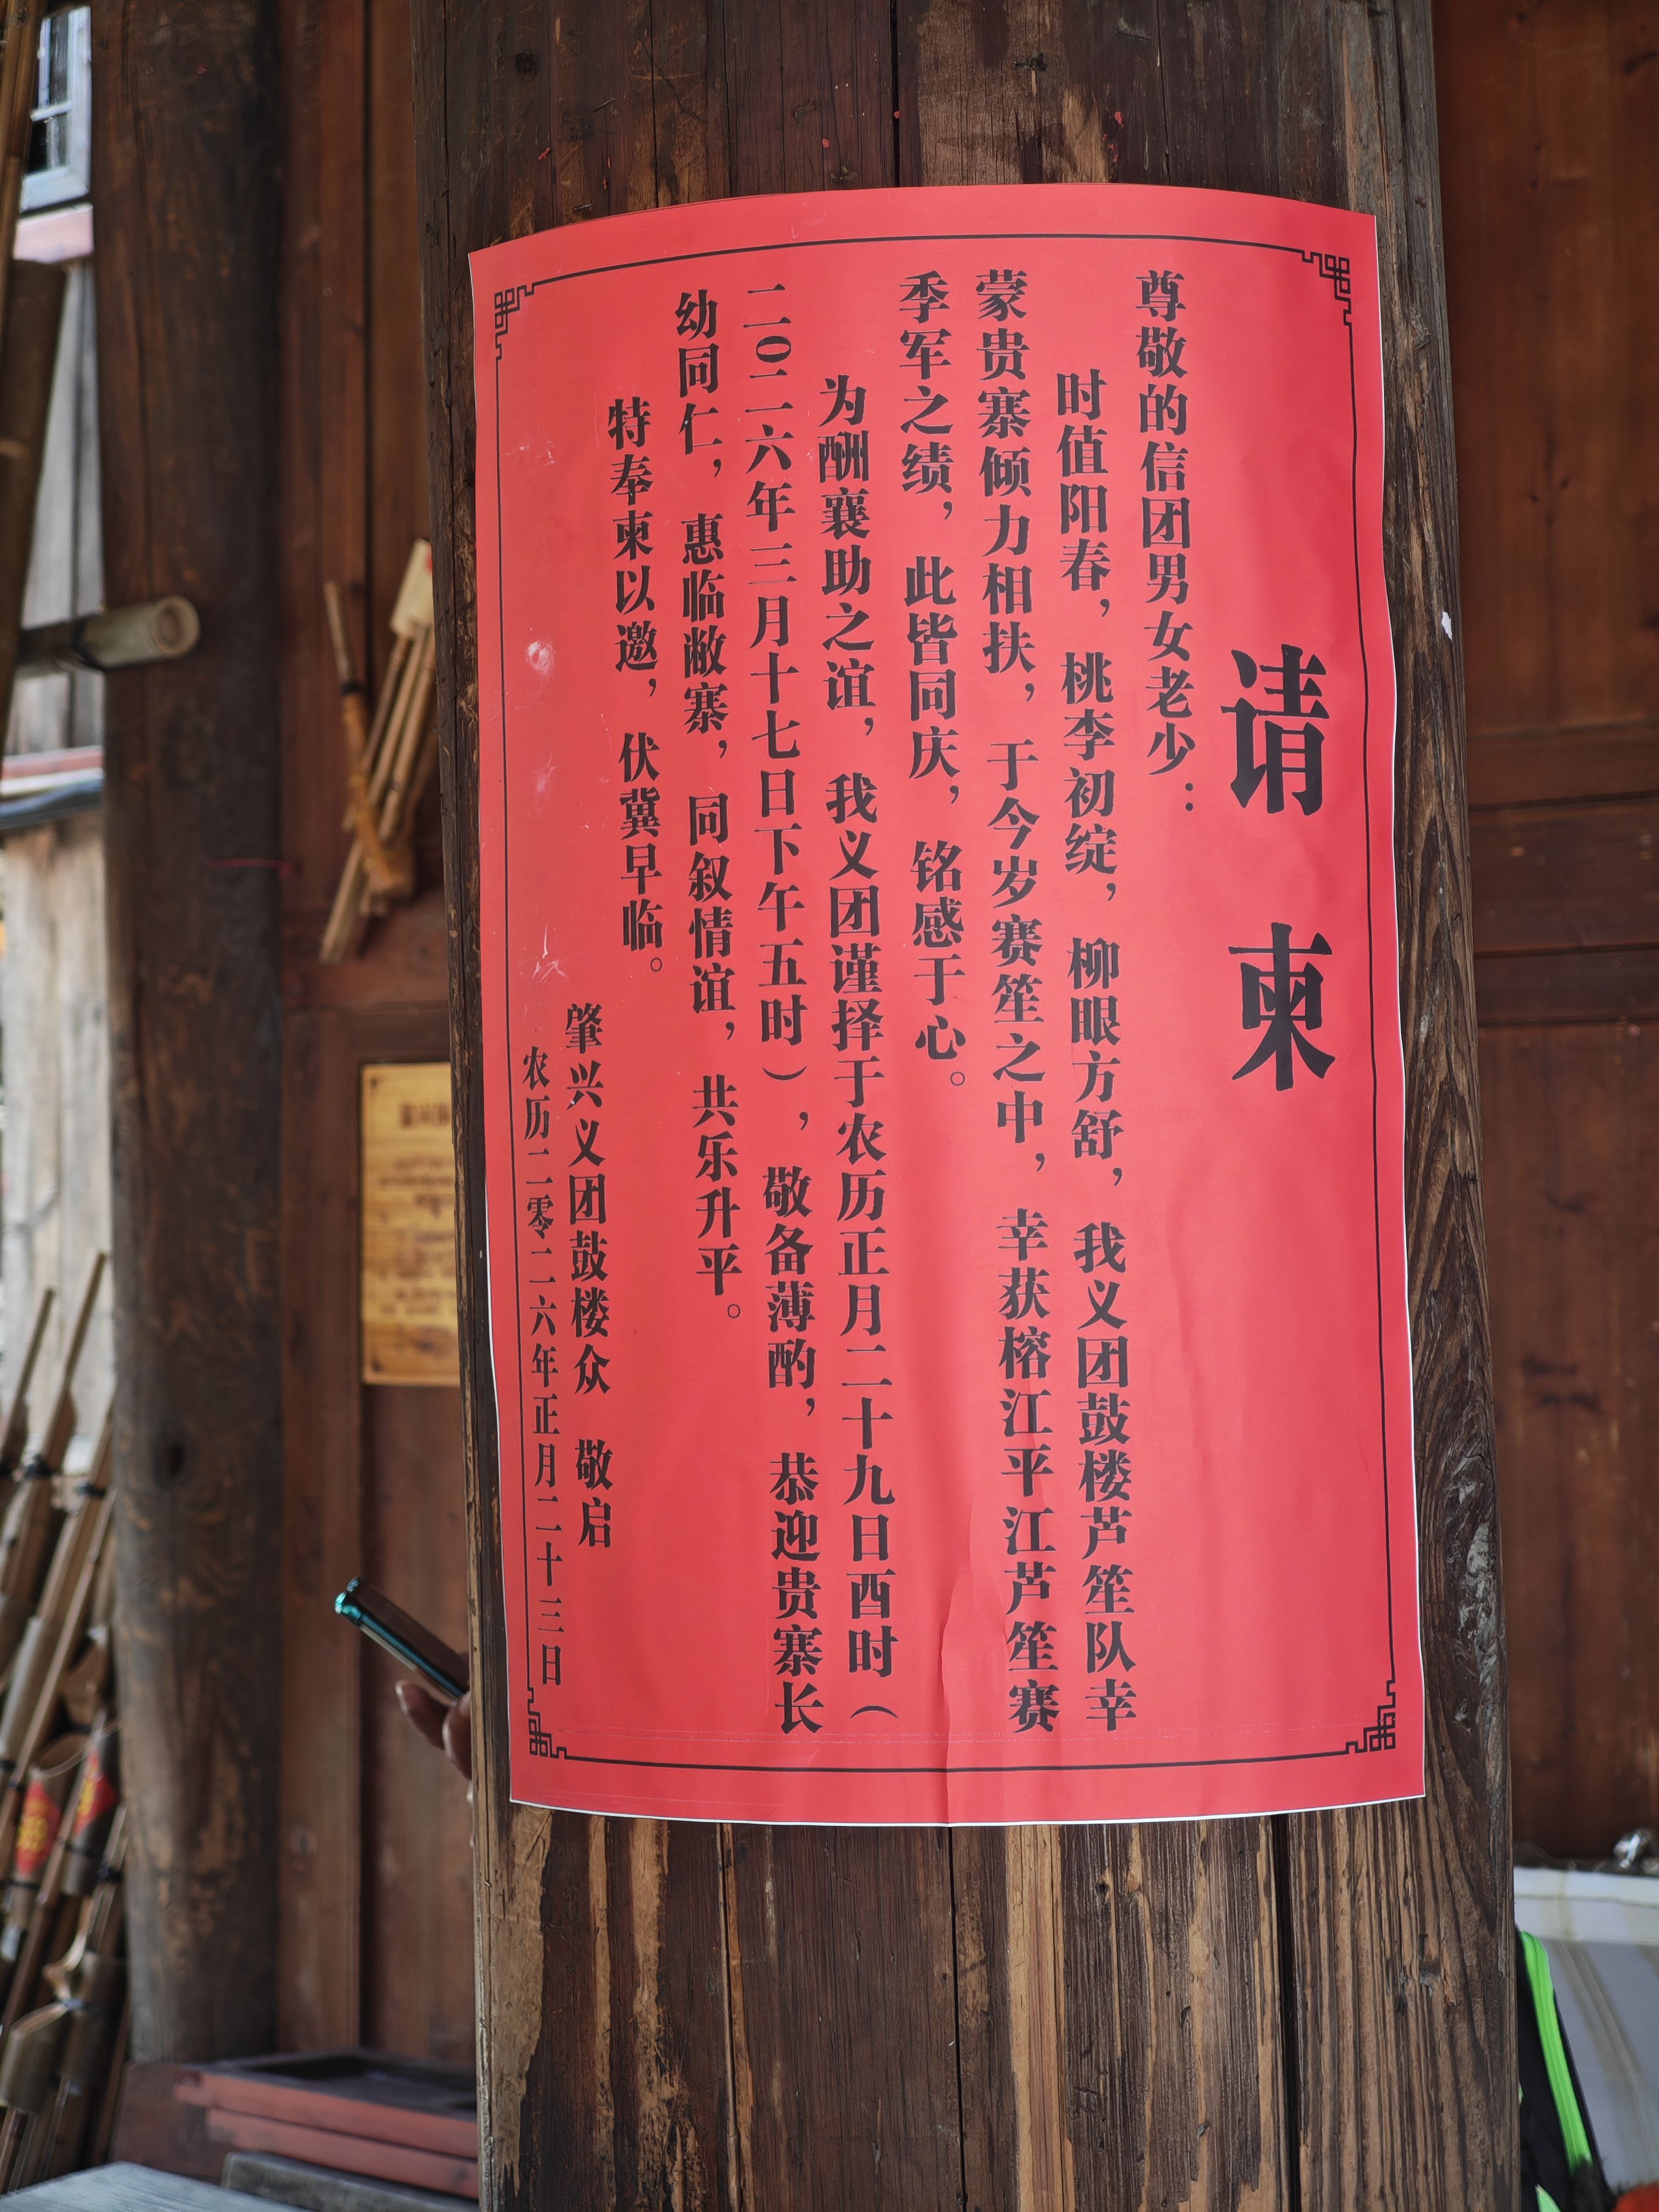 请柬
尊敬的信团男女老少：
时值阳春，桃李初绽，柳眼方舒，我义团鼓楼芦笙队幸
蒙贵寨倾力相扶，于今岁赛笙之中，幸获榕江平江芦笙赛
季军之绩，此皆同庆，铭感于心。
为酬襄助之谊，我义团谨择于农历正月二十九日酉时（
二〇二六年三月十七日下午五时），敬备薄酌，恭迎贵寨长
幼同仁，惠临敝寨，同叙情谊，共乐升平。
特奉柬以邀，伏冀早临。
肇兴义团鼓楼众 敬启
农历二零二六年正月二十三日